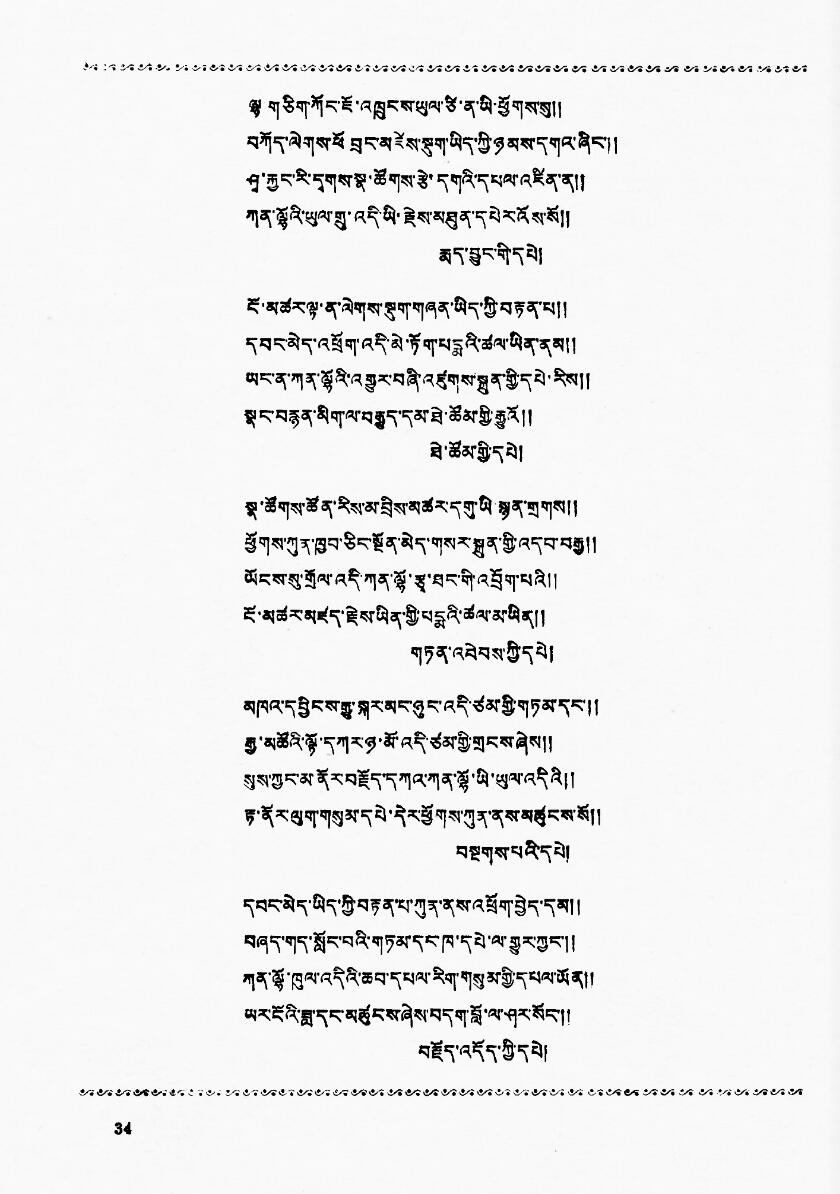 ལྷ་གཅིག་ཀོང་ཇོ་འཁྲུངས་ཡུལ་ཙི་ན་ཡི་ཕྱོགས་སུ།།
བཀོད་ལེགས་ཕོ་བྲང་མཛེས་སྡུག་ཡིད་ཀྱི་ཉམས་དགའ་ཞིང་།།
ཤྭ་རྐྱང་རི་དྭགས་སྣ་ཚོགས་རྩེ་དགའི་དཔལ་འཛིན་ན།།
ཀན་ལྷོའི་ཡུལ་གྲུ་འདི་ཡི་རྗེས་མཐུན་དཔེར་འོས་སོ།།
རྨད་བྱུང་གི་དཔེ།
ངོ་མཚར་ལྟ་ན་ལེགས་སྡུག་གཞན་ཡིད་ཀྱི་བརྟན་པ།།
དབང་མེད་འཕྲོག་འདི་མེ་ཏོག་པདྨའི་ཚལ་ཡིན་ནམ།།
ཡང་ན་ཀན་ལྷོའི་འགྱུར་བཞི་འཛུགས་སྐྲུན་གྱི་དཔེ་རིས།།
སྣང་བརྙན་མིག་ལ་བརྒྱུད་དམ་ཐེ་ཚོམ་གྱི་རྒྱུའོ།།
ཐེ་ཚོམ་གྱི་དཔེ།
སྣ་ཚོགས་ཚོན་རིས་མ་བྲིས་མཚར་དགུ་ཡི་སྙན་གྲགས།།
ཕྱོགས་ཀུན་ཁྱབ་ཅིང་སྔོན་མེད་གསར་སྐྲུན་གྱི་འདབ་བརྒྱ།།
ཡོངས་སུ་གྲོལ་འདི་ཀན་ལྷོ་རྩྭ་ཐང་གི་འབྲོག་པའི།།
ངོ་མཚར་མཛད་རྗེས་ཡིན་གྱི་པདྨའི་ཚལ་མ་ཡིན།།
གཏན་འབེབས་ཀྱི་དཔེ།
མཁའ་དབྱིངས་རྒྱུ་སྐར་མང་ཉུང་འདི་ཙམ་གྱི་གཏམ་དང་།།
རྒྱ་མཚོའི་ལྟོ་དཀར་ཉ་མོ་འདི་ཙམ་གྱི་གྲངས་ཞེས།།
སུས་ཀྱང་མ་ནོར་བརྗོད་དཀའ་ཀན་ལྷོ་ཡི་ཡུལ་འདིའི།།
རྟ་ནོར་ལུག་གསུམ་དཔེ་དེར་ཕྱོགས་ཀུན་ནས་མཚུངས་སོ།།
བསྔགས་པའི་དཔེ།
དབང་མེད་ཡིད་ཀྱི་བརྟན་པ་ཀུན་ནས་འཕྲོག་བྱེད་དམ།།
བཞད་གད་སློང་བའི་གཏམ་དང་ཁ་དཔེ་ལ་གྱུར་ཀྱང་།།
ཀན་ལྷོ་ཁུལ་འདིའི་ཆབ་དཔལ་རིག་གསུམ་གྱི་དཔལ་ཡོན།།
ཡར་ངོའི་ཟླ་དང་མཚུངས་ཞེས་བདག་བློ་ལ་ཤར་སོང་།།
བརྗོད་འདོད་ཀྱི་དཔེ།
34